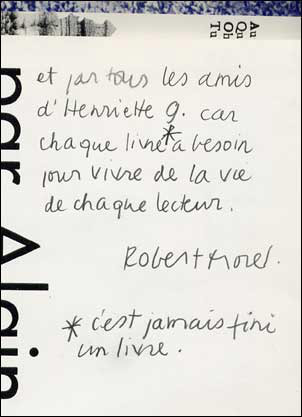 Au
Qu
Ob
Tu
par Alain
et par tous les amis
d'Henriette G. car
chaque livre* a besoin
pour vivre de la vie
de chaque lecteur.
Robert Morel.
* c'est jamais fini
un livre.